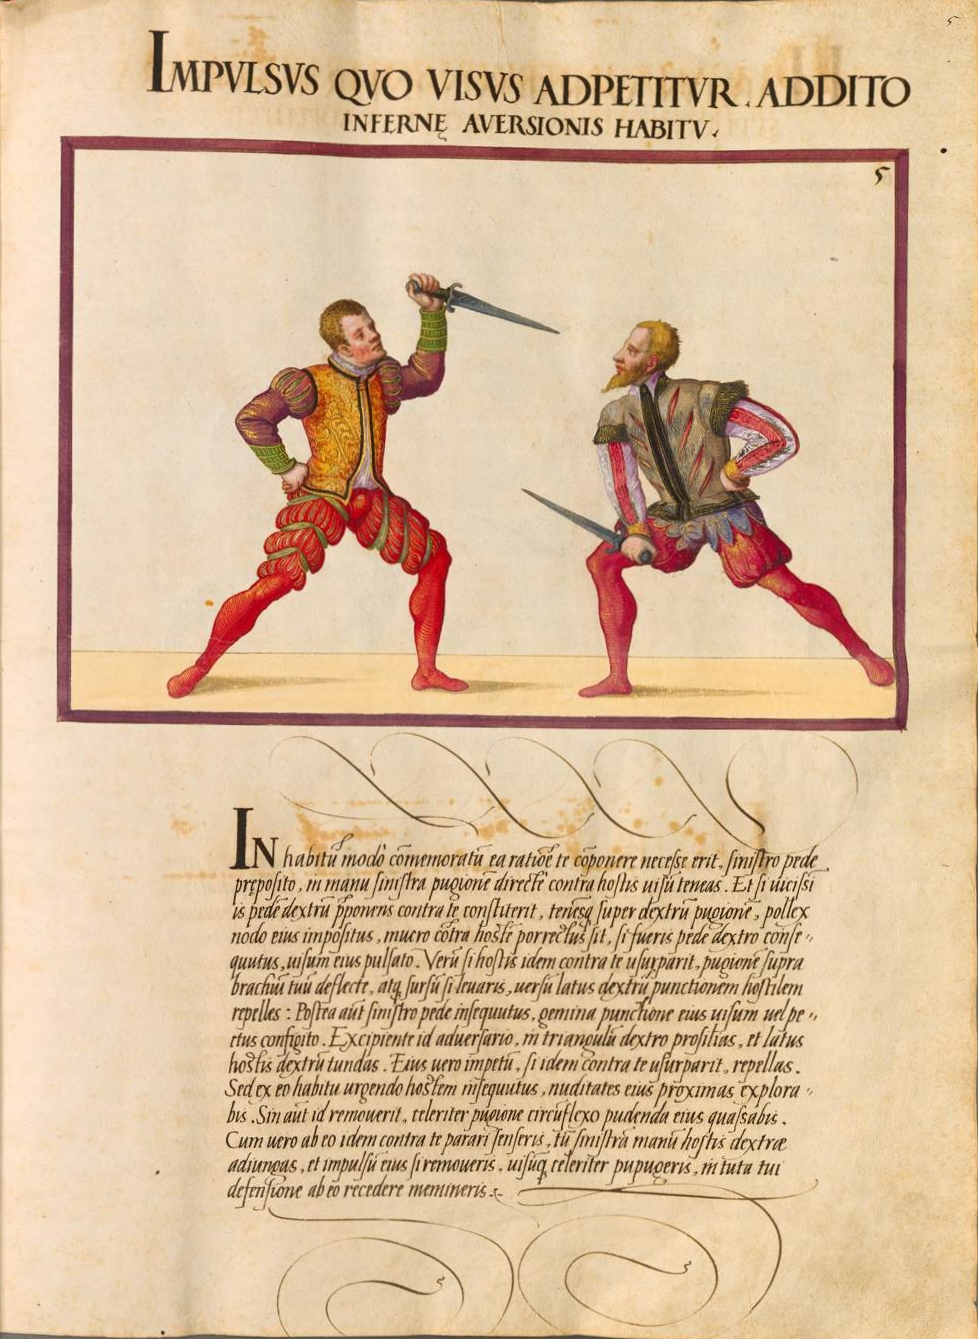 5
IMPVLSVS QVO VISVS ADPETITVR. ADDITO
INFERNĘ AVERSIONIS HABITV.
5
IN habitũ modò cõmemoratũ ea ratiõe te cõponere necesse erit, sinistro pede
pręposito, in manu sinistra pugionẽ directè contra hostis uisũ teneas. Et si uicissi
is pedẽ dextrũ p̃ponens contra te constiterit, tenesq̃ super dextrũ pugionẽ, pollex
nodo eius impositus, mucro cõtra hostẽ porrectus sit, si fueris pede dextro conse-
quutus, uisum eius pulsato. Verũ si hostis idem contra te usurparit, pugionẽ supra
brachiũ tuũ deflecte, atq̃ sursũ si leuaris, uersũ latus dextrũ punctionem hostilem
repelles: Postea aũt sinistro pede insequutus, gemina punctione eius uisum uel pe-
ctus configito. Excipiente id aduersario, in triangulũ dextro prosilias, et latus
hostis dextrũ tundas. Eius uero impetũ, si idem contra te usurparit, repellas.
Sed ex eo habitu urgendo hostem insequutus, nuditates eius proximas explora-
bis. Sin aũt id remouerit, celeriter pugione circũflexo pudenda eius quassabis.
Cum uero ab eo idem contra te parari senseris, tũ sinistrã manũ hostis dextræ
adiungas, et impulsũ eius si remoueris, uisũq̃ celeriter pupugeris, in tuta tui
defensione ab eo recedere memineris.